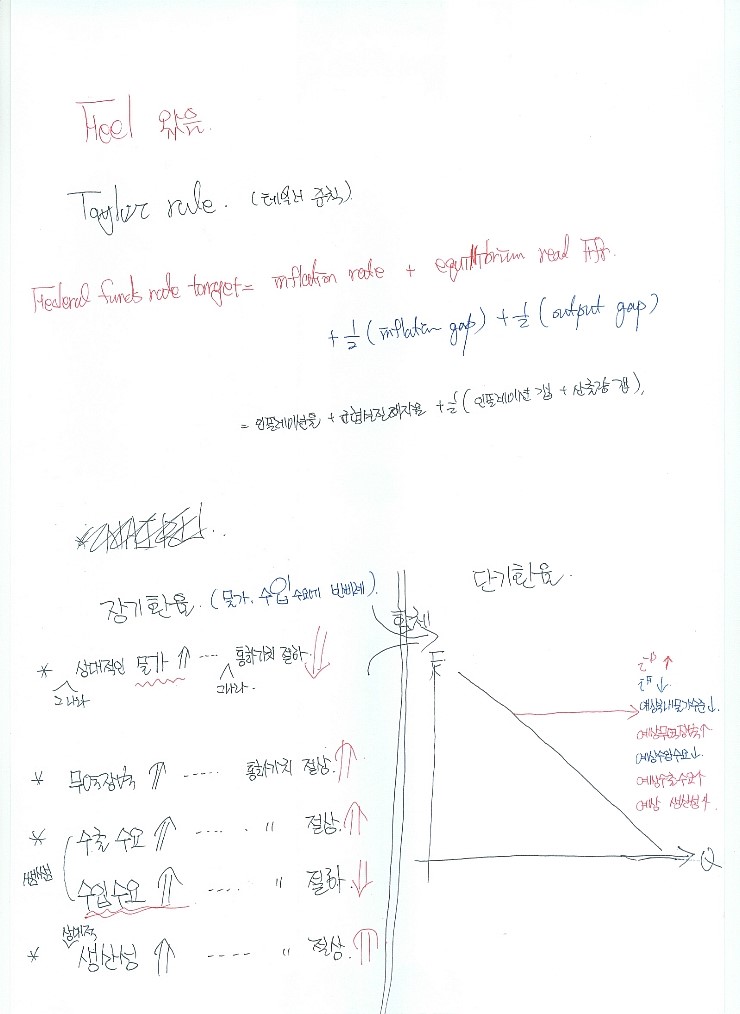 Feel 왔음.
Taylor rule. (테일러 준칙)
Federal funds rate target = inflation rate + equilibrium real FFr.
+ 1/2 (inflation gap) + 1/2 (output gap)
= 인플레이션율 + 균형실질이자율 + 1/2 (인플레이션 갭 + 산출량 갭).
장기환율. (물가, 수입수요만 반비례).
* 상대적인 물가 ↑ ---- 통화가치 절하. ↓
그나라
그나라.
* 무역장벽 ↑ ----- 통화가치 절상. ↑
* 수출 수요 ↑ ---- " 절상. ↑
쌤쌤
수입수요 ↑ ---- " 절하. ↓
상대적
* 생산성 ↑ ---- " 절상. ↑
합체
단기환율.
E
Q
i^D ↑
i^F ↓
예상국내물가수준 ↓.
예상무역장벽 ↑
예상수입수요 ↓.
예상수출수요 ↑
예상 생산성 ↑.